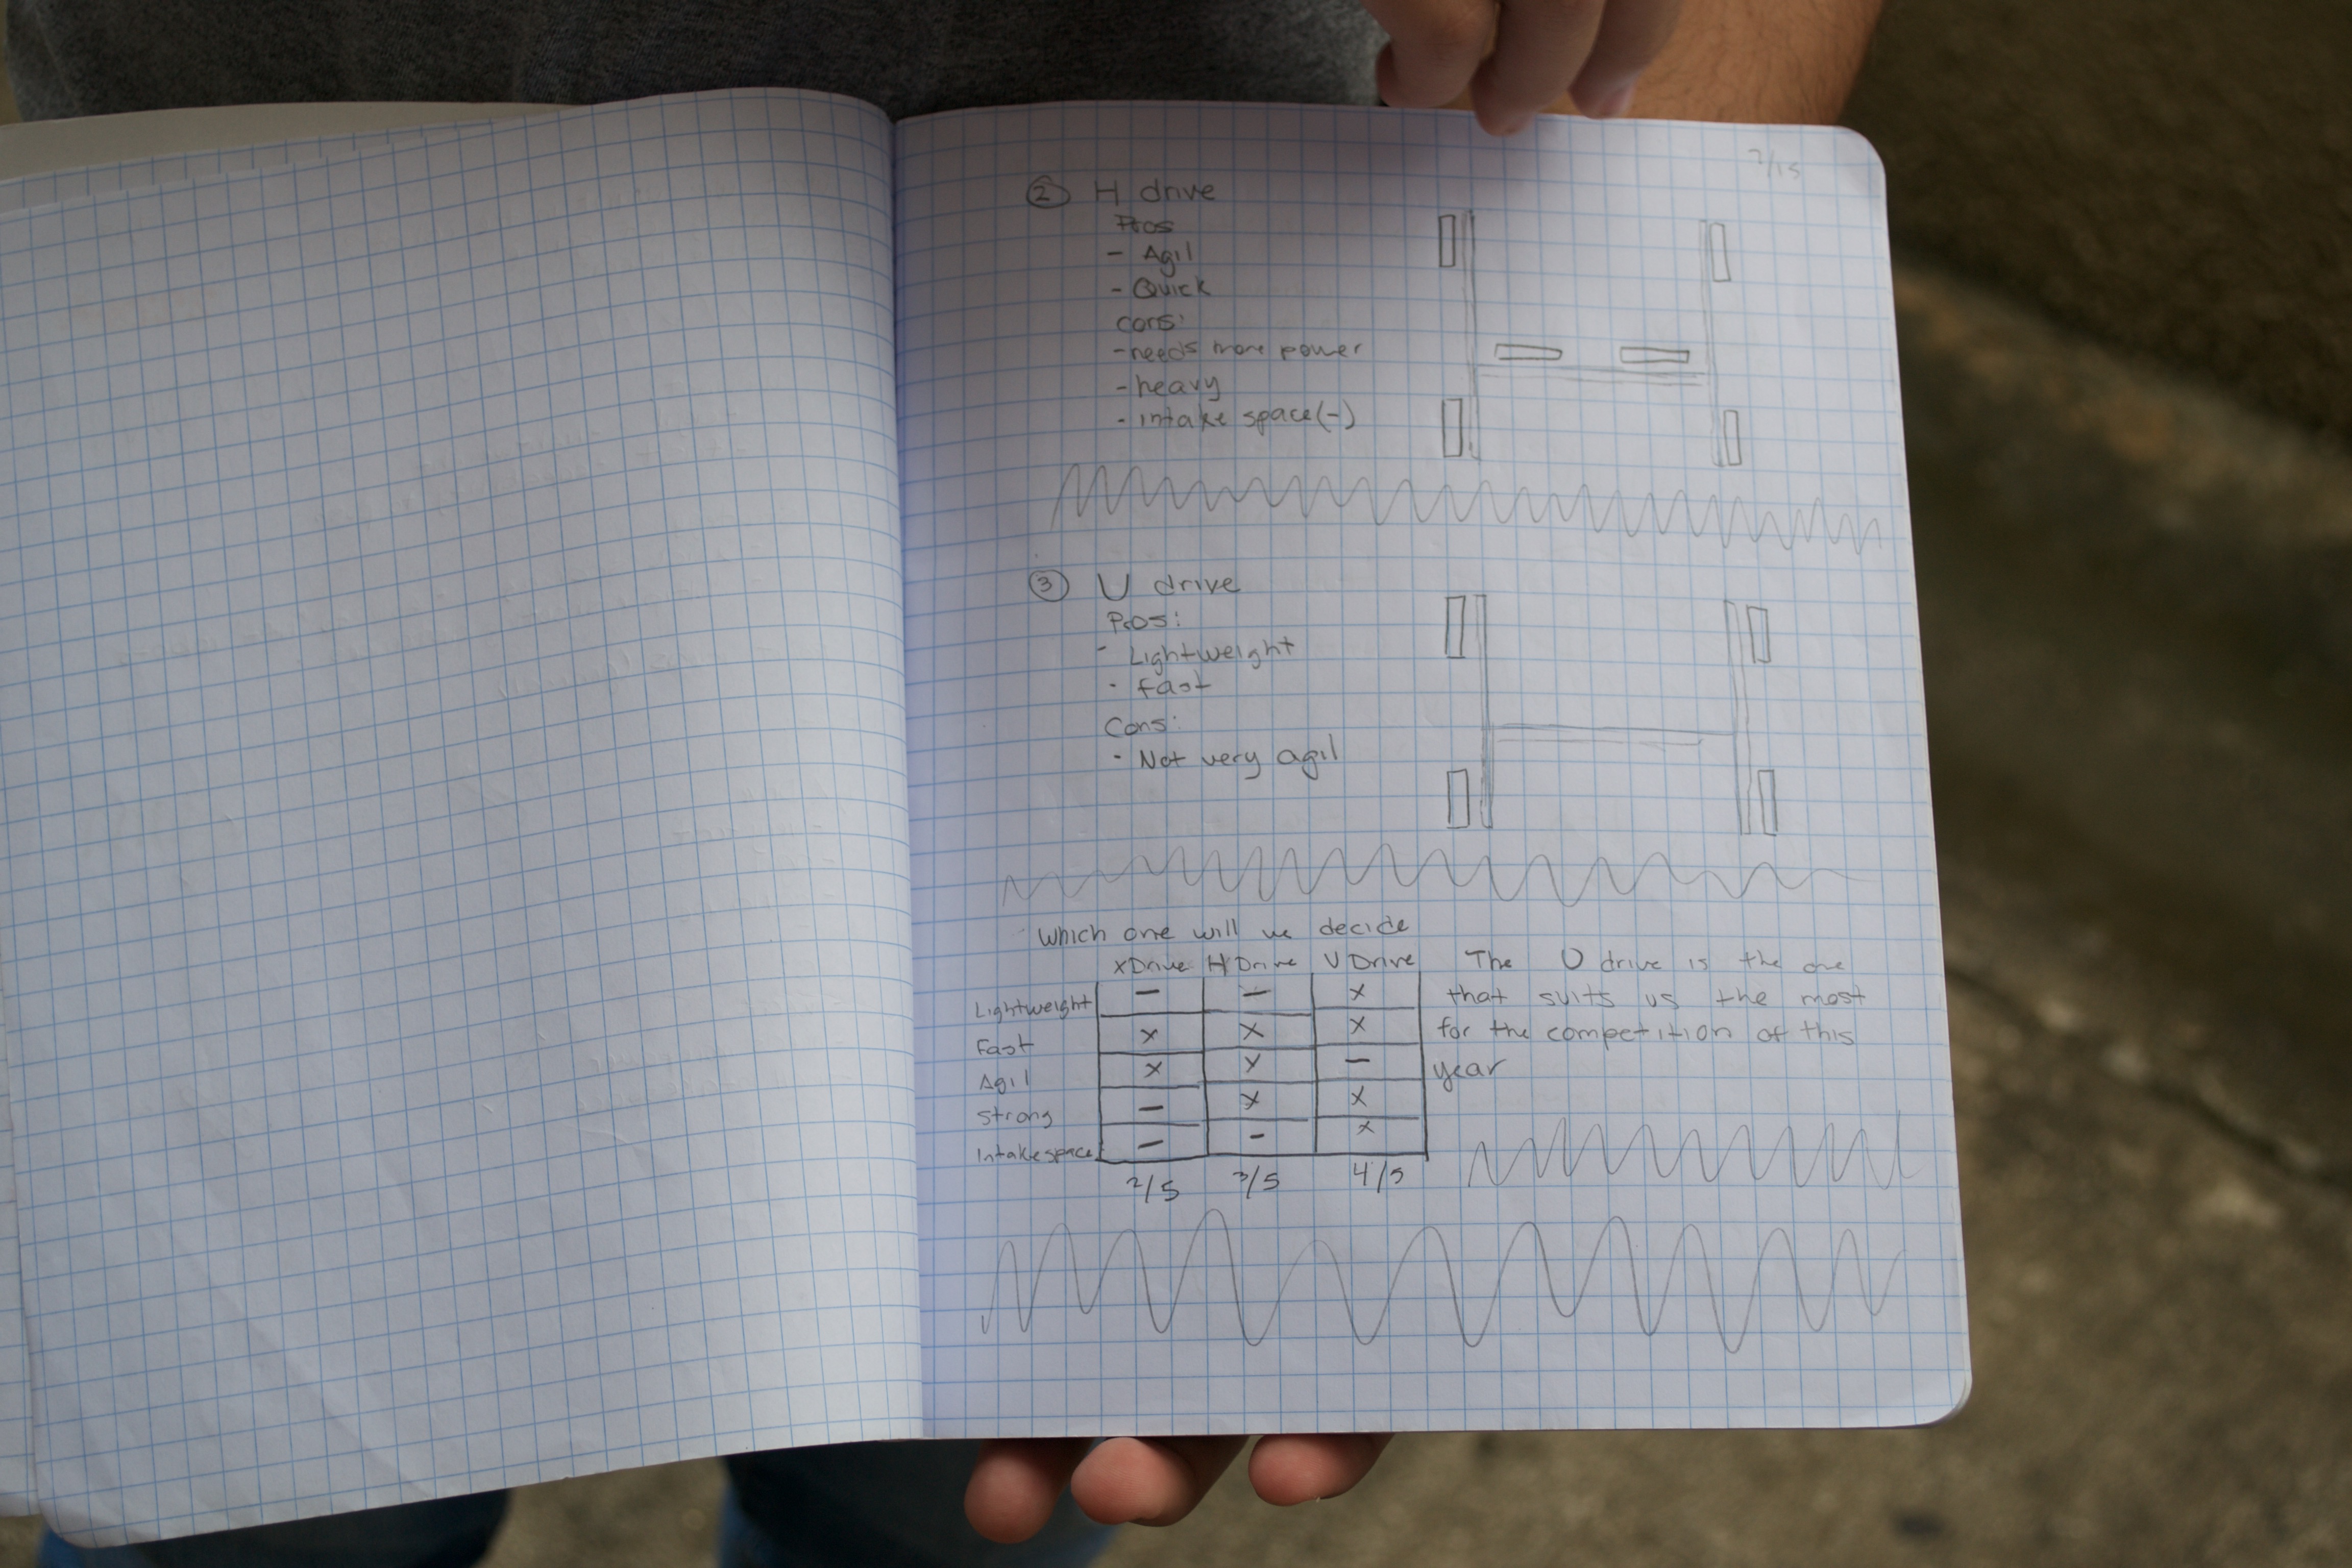 7/15
② H drive
Pros
- Agil
- Quick
cons:
- needs more power
- heavy
- intake space(-)
③ U drive
Pros:
- Lightweight
- fast
Cons:
- Not very agil
which one will we decide
xDrive H Drive U Drive
Lightweight — — x
Fast x x x
Agil x x —
Strong — x x
Intake space — - x
2/5 3/5 4/5
The U drive is the one
that suits us the most
for the competition of this
year